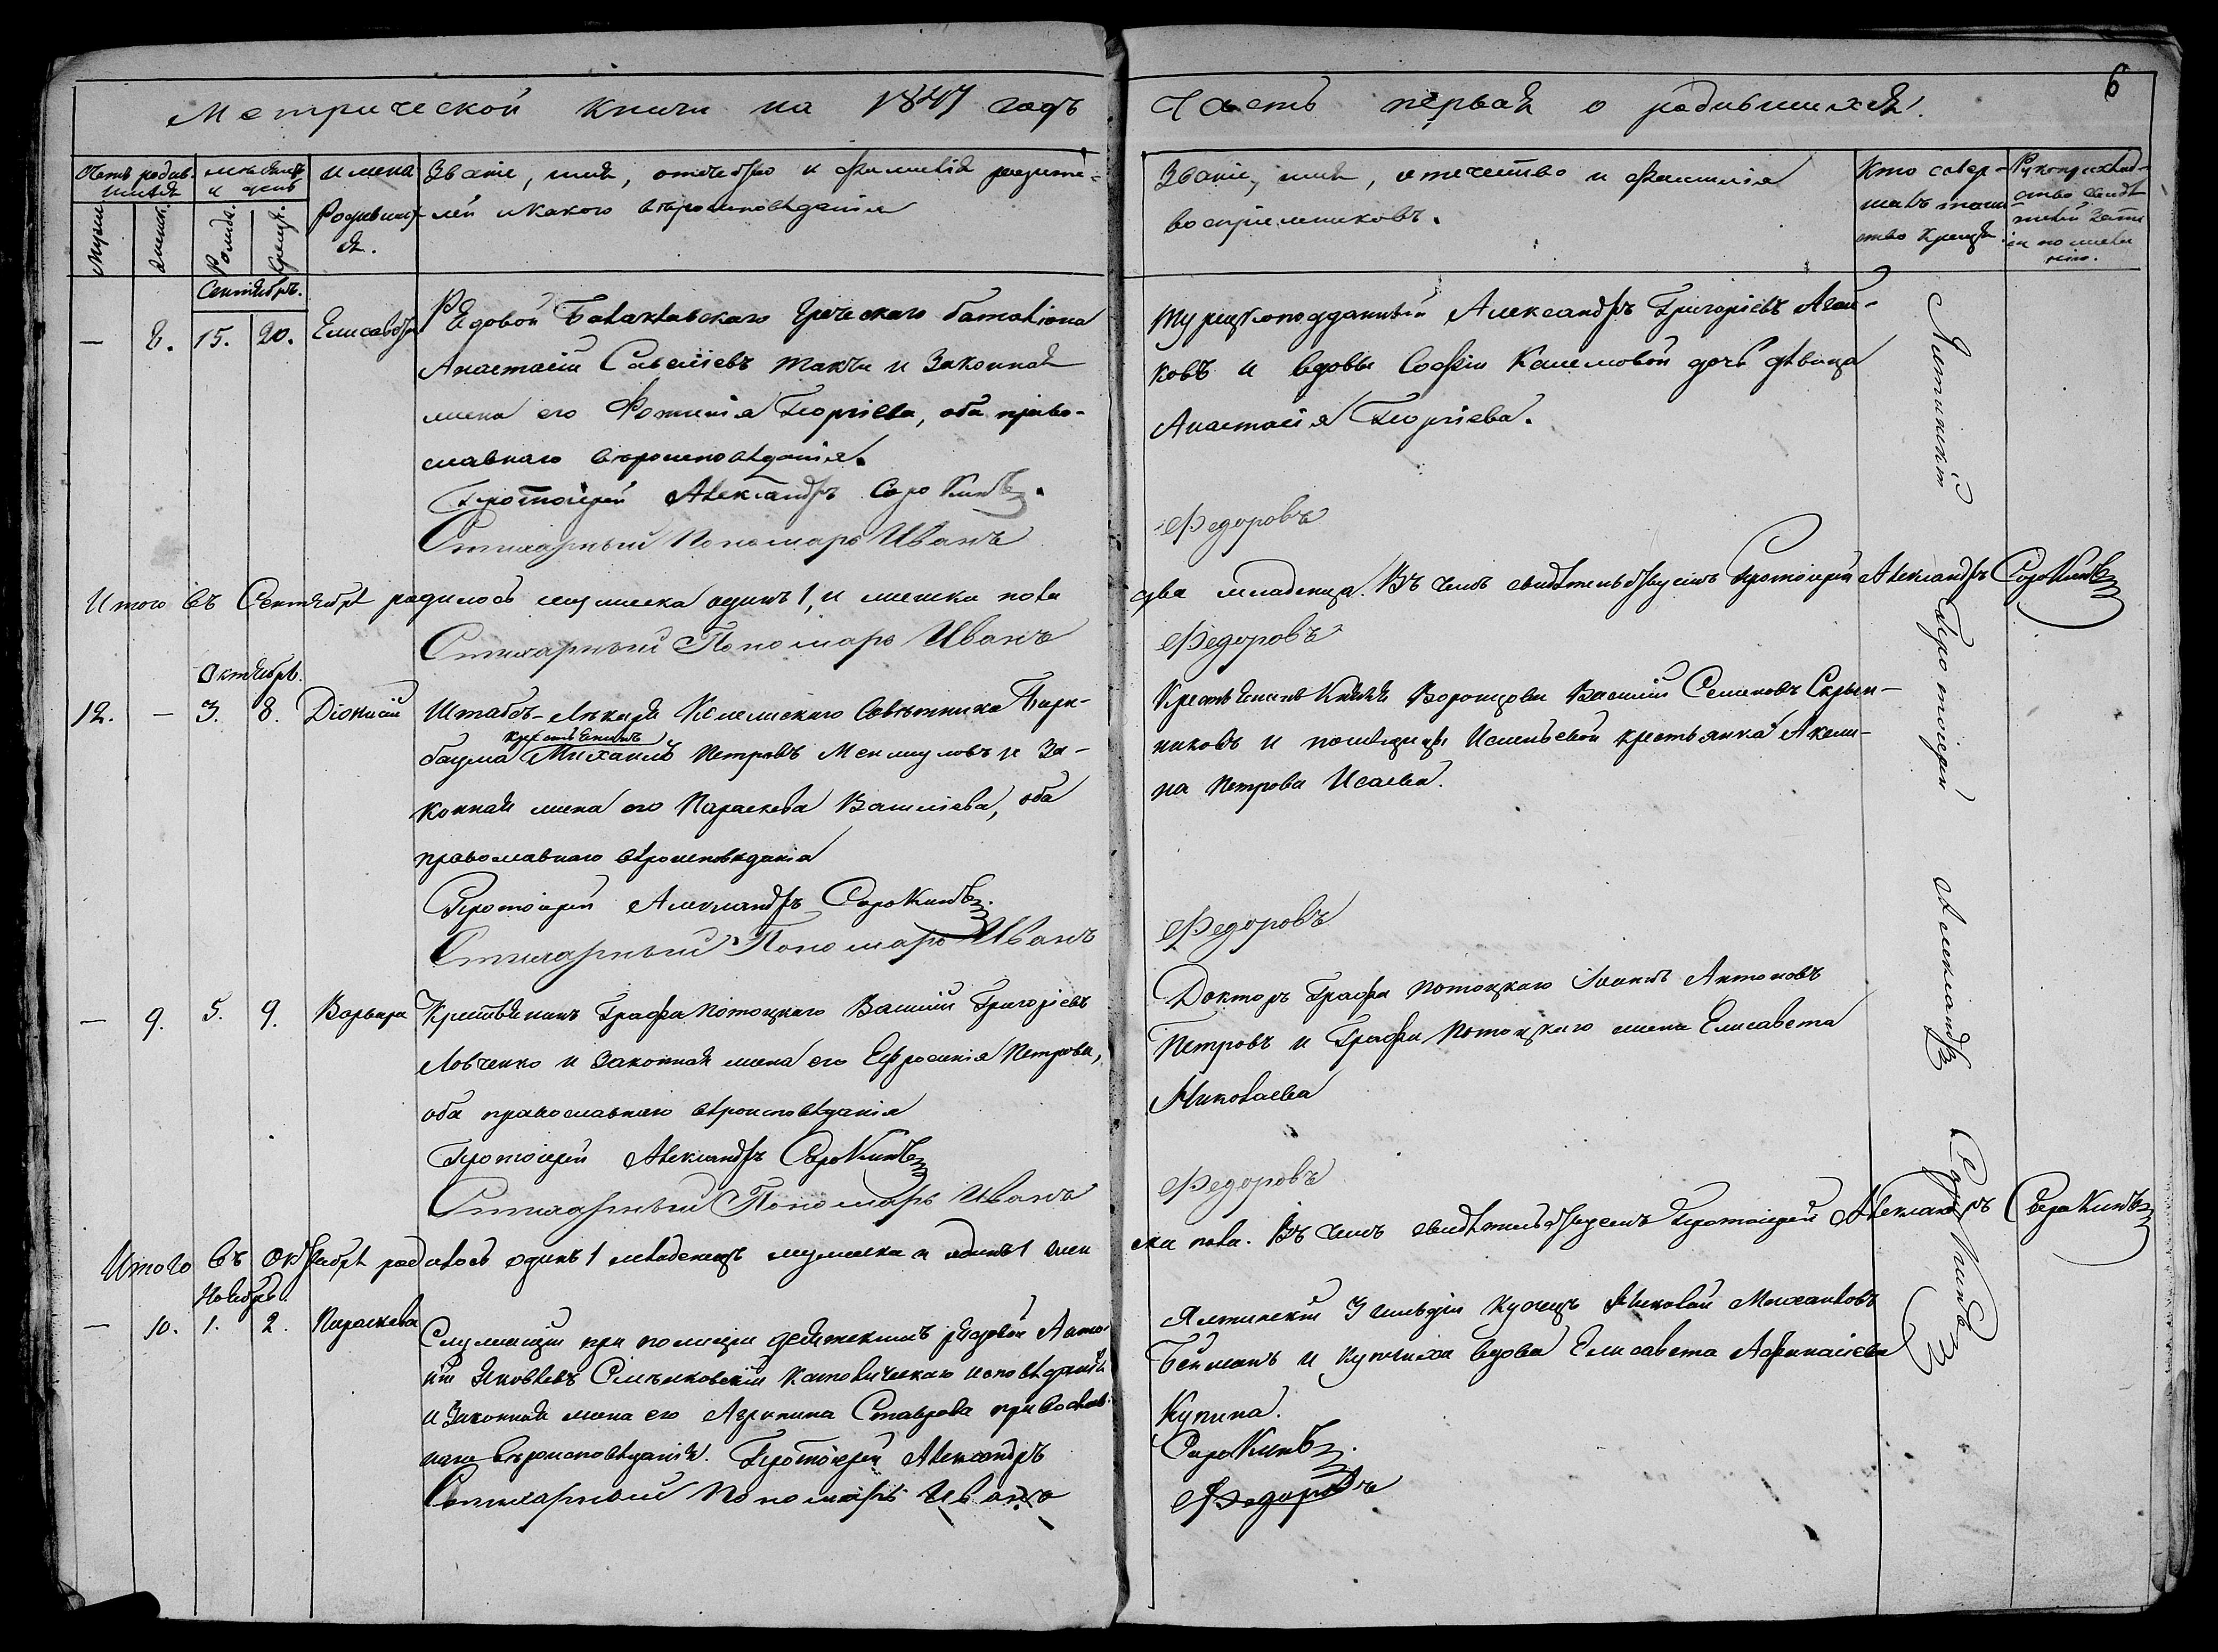 Метрической книги на 1847 годъ
Часть первая о родившихся.
6
Счетъ родившихся
Мужск.
Женск.
мѣсяцъ и день
Рожд.
Крещ.
имена Родившихся.
Званіе, имя, отечество и Фамилія родите-
лей и какого вѣроисповѣданія
Званіе, имя, отечество и Фамилія
воспріемниковъ.
Кто совер-
шалъ таин-
ство Крещ.
Рукоприклад-
ство свидѣ
телей записи
по желанію.
Сентябрь.
— 8. 15. 20. Елисавета
Рядовой Балаклавскаго Греческаго баталіона
Анастасій Савеліевъ Такчи и Законная
жена его Фотинія Георгіева, оба право-
славнаго вѣроисповѣданія.
Протоіерей Александръ Сорокинъ.
Стихарный Пономарь Иванъ
Турецкоподданный Александръ Григоріевъ Аган-
ковъ и вдовы Софіи Калемовой дочь дѣвица
Анастасія Георгіева.
Федоровъ
Итого въ Сентябрѣ родилось мужеска одинъ 1, и женска пола
два младенца. Въ чемъ свидѣтельствуемъ Протоіерей Александръ Сорокинъ
Стихарный Пономарь Иванъ
Федоровъ
Октябрь.
12. — 3. 8. Діонисій
Штабсъ-лѣкаря Коллежскаго Совѣтника Барн-
крестьянинъ
баума Михаилъ Петровъ и За-
конная жена его Параскева Василіева, оба
православнаго вѣроисповѣданія
Протоіерей Александръ Сорокинъ.
Стихарный Пономарь Иванъ
Крестьянинъ Князя Воронцова Василій Семеновъ Скрын-
никовъ и помѣщицы крестьянка Акели-
на Петрова Исаева.
Федоровъ
— 9. 5. 9. Варвара
Крестьянинъ Графа Потоцкаго Василій Григоріевъ
Ловченко и Законная жена его Ефросинія Петрова,
оба православнаго вѣроисповѣданія
Протоіерей Александръ Сорокинъ
Стихарный Пономарь Иванъ
Докторъ Графа Потоцкаго Іоаннъ Антоновъ
Петровъ и Графа Потоцкаго жена Елисавета
Николаева
Федоровъ
Итого въ Октябрѣ родилось одинъ 1 младенецъ мужеска и одинъ 1 жен
ска пола. Въ чемъ свидѣтельствуемъ Протоіерей Александръ Сорокинъ
Ноябрь.
— 10. 1. 2. Параскева
Служащій при полиціи рядовой Анто-
ній Яковлевъ Католическаго исповѣданія
и Законная жена его Агрипина Ставрова православ-
наго вѣроисповѣданія. Протоіерей Александръ
Стихарный Пономарь Иванъ
Ялтинскій 3 гильдіи купецъ Николай Михаиловъ
Бейманъ и купчиха вдова Елисавета Афанасіева
Купина.
Сорокинъ.
Федоровъ
Ялтинскій Протоіерей Александръ Сорокинъ